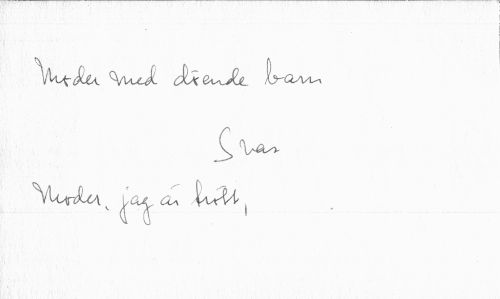 Moder med döende barn
Svar
Moder, jag är trött,